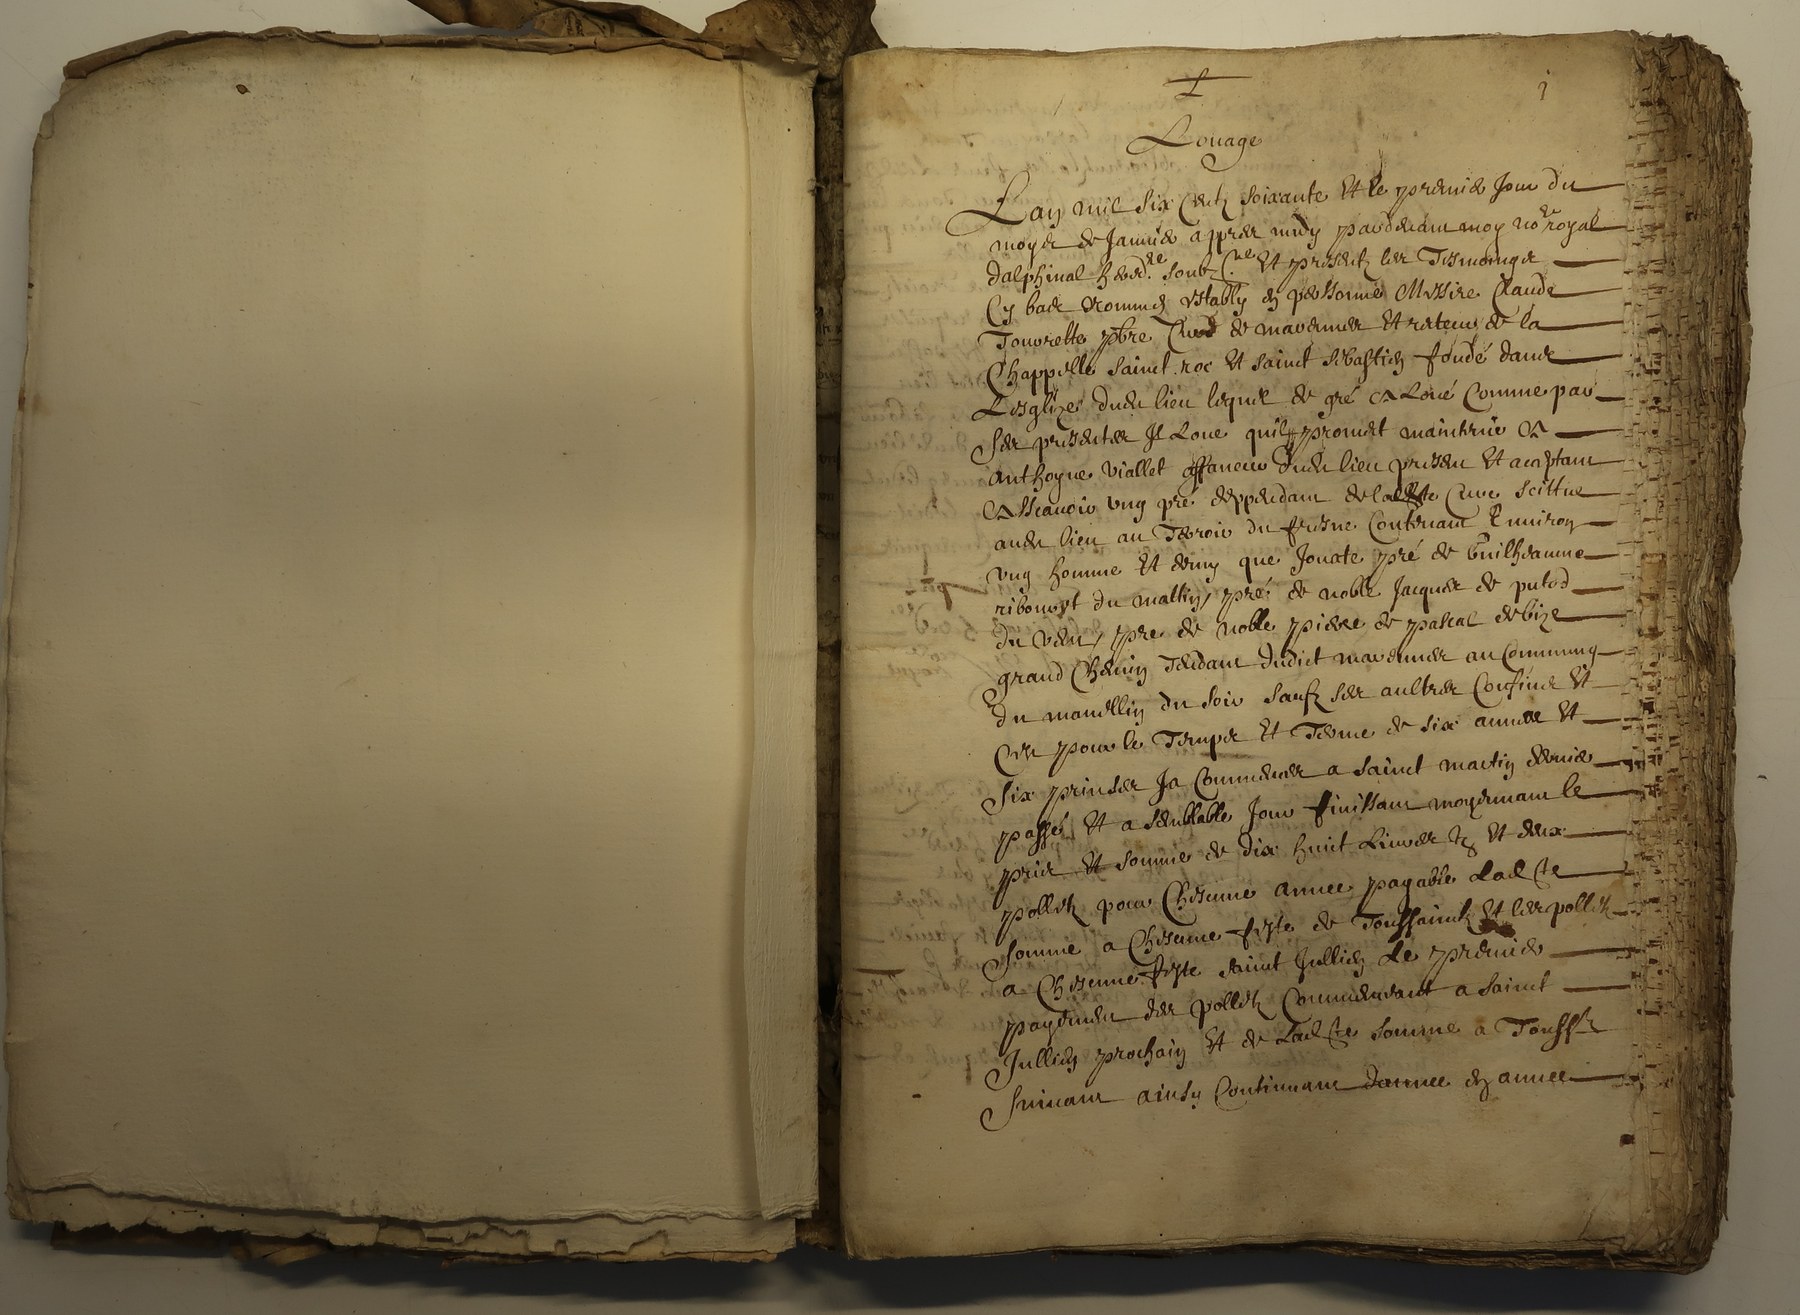 1
Louage
Lan mil six centz soixante et le premier jour du
moys de Janvier appres midy pardevant moy no.re royal
dalphinal hered.re soub.ne et presentz les tesmoings
cy bas nommes estably en personne Messire Claude
Tourette pbre curé de mavennes et recteur de la
Chappelle sainct roc et sainct sebastien fondé dans
Lesglize dudit lieu lequel de gré a Loué comme par
ses presentes Il Loue quil promet maintenir a
anthoyne viallet affaneur dudit lieu present et acceptant
Assavoir ung pré deppendant de ladte cure scittue
audit lieu au terroir du fresne contenant Environ
ung homme et demy que Jouxte pré de Guilheaume
du mattin, pré de noble Jacques de
du vent, pre de noble pierre de pascal de bize
grand Chemin tendant dudict mavennes au
du soir saufz ses aultres confins et
Ce pour le temps et terme de six annee et
six prinses Ja commences a sainct martin dernier
passé et a semblable Jour finissant moyennant le
pris et somme de dix huict Livres tz et deux
polletz pour chescune annee payable Ladte
somme a Chescune feste de Toussainctz et les polletz
a Chescune feste sainct Jullien Le premier
payement des polletz commencant a sainct
Jullien prochain et de Ladte somme a Toussz
suivant ainsy continuant dannee en annee